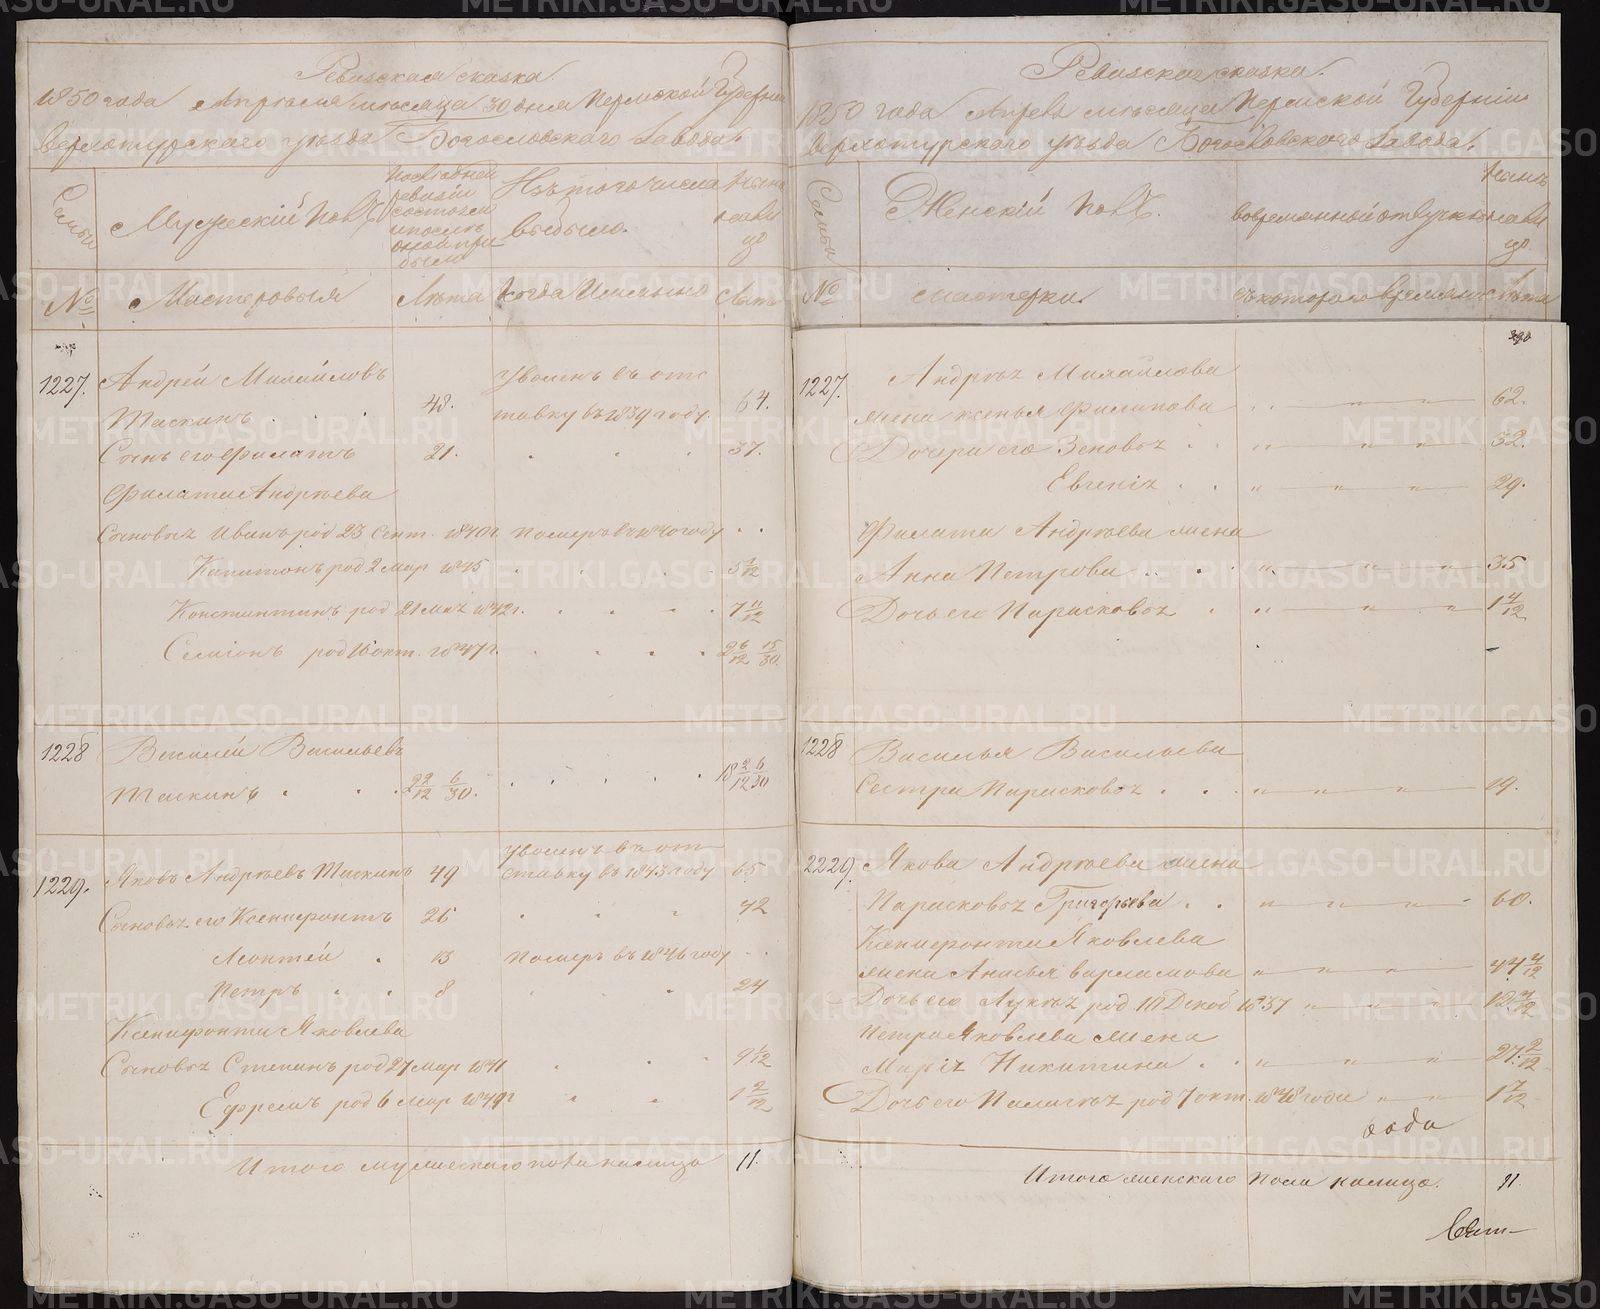 Ревизская сказка
1850 года Апреля месяца 30 дня Пермской Губернии
Верхотурского уезда Богословского Завода.
Семьи
Мужеский полъ
последней ревизии состояли и после оной прибыли
Изъ того числа выбыло.
Ныне налицо
№
Мастеровыя
Лета
Когда Именно
Лета
1227. Андрей Михайловъ
Таскинъ 48. Уволенъ въ отставку въ 1839 году. 64.
Сынъ его Филатъ 21. 37.
Филата Андреева
Сыновья Иванъ род 23 Сент. 1840 г. Померъ въ 1840 году
Капитонъ род 2 Мар 1845 5 1/12
Константинъ род 21 Мая 1842 г. 7 11/12
Симionъ род 16 окт. 1847 г. 2 6/12 15/30
1228 Василий Васильевъ
Таскинъ 2 2/12 6/30. 18 2/12 6/30
1229. Яковъ Андреевъ Таскинъ 49 уволенъ въ отставку въ 1843 году 65
Сыновья его Ксенифонтъ 26 42
Леонтей 13 Померъ въ 1846 году
Петръ 8 24
Ксенифонта Яковлева
Сыновья Степанъ род 27 мар 1841 9 1/12
Ефремъ род 6 мар 1849 г 1 2/12
Итого мужескаго пола налицо 11.
Ревизская сказка.
1850 года Апреля месяца Пермской Губернии
Верхотурского уезда Богословского Завода.
Семьи
Женский полъ.
во временной отлучке
Ныне налицо
№
мастерки.
съ котораго времени
Лета
390
1227. Андрея Михайлова
жена Ксенья Филипова 62.
Дочери его Зеновья 32.
Евгенiя 29.
Филата Андреева жена
Анна Петрова 35
Дочь его Парасковья 1 4/12
1228 Василья Васильева
Сестра Парасковья 19.
2229. Якова Андреева жена
Парасковья Григорьева 60.
Ксенифонта Яковлева
жена Анисья Варламова 44 4/12
Дочь его Лукея род 10 Декаб 1837 12 4/12
Петра Яковлева жена
Марiя Никитина 27. 2/12
Дочь его Палагея род 7 окт. 1848 года 1 7/12
года
Итого женскаго пола налицо. 11.